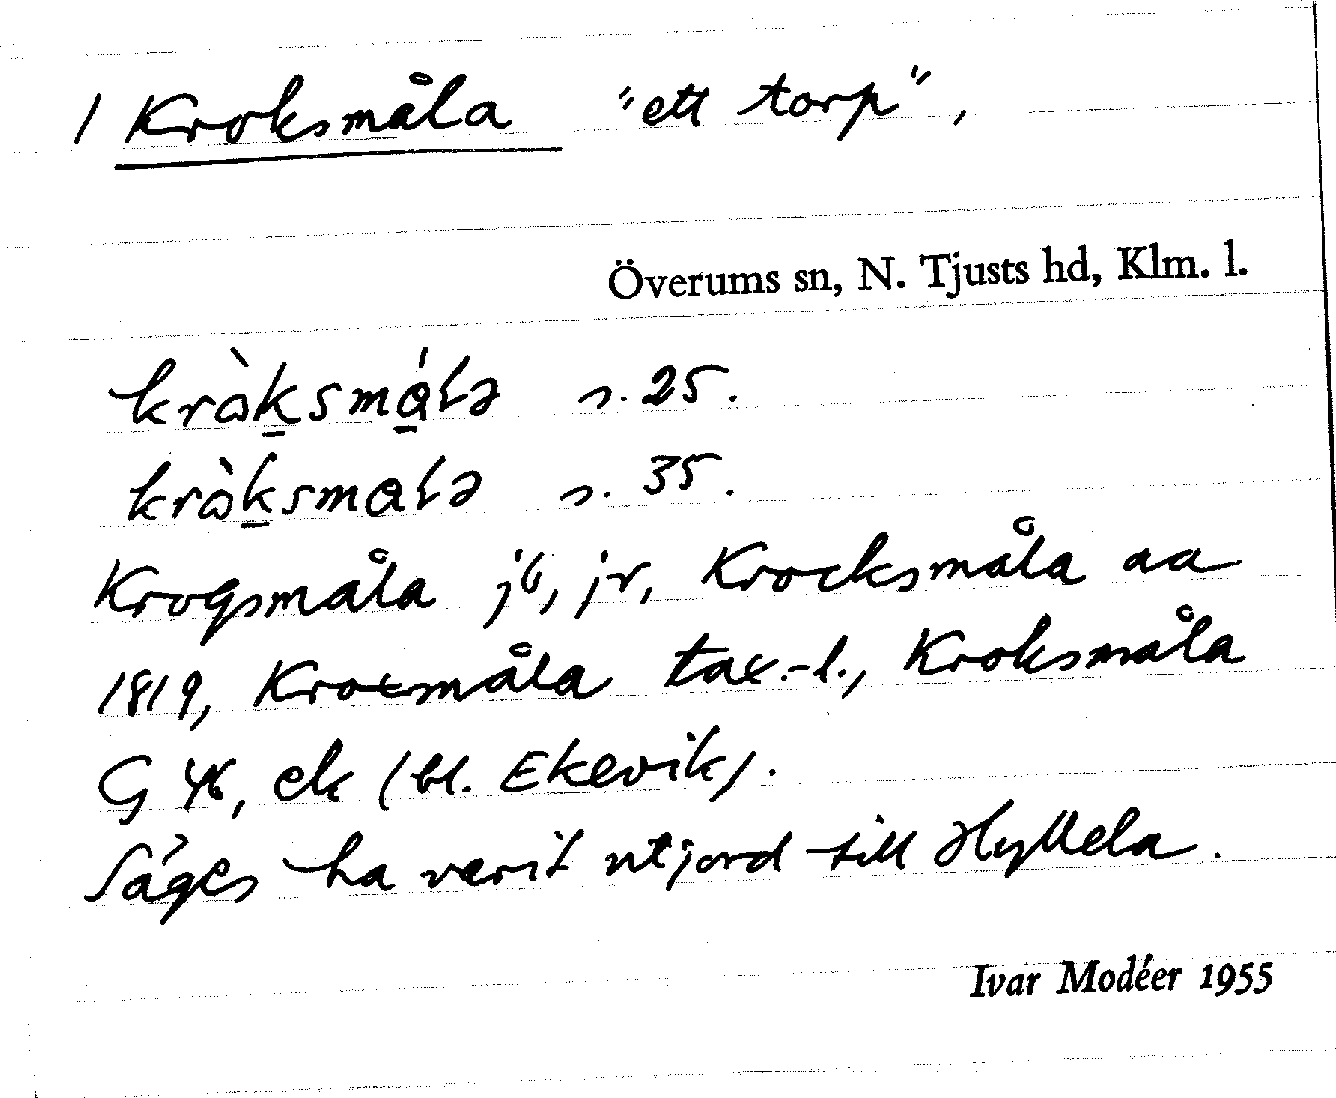 1 Kroksmåla "ett torp",
Överums sn, N. Tjusts hd, Klm. l.
kràksmálə s. 25.
kràksmalə s. 35.
Krogsmåla jb, jr, Krocksmåla aa
1819, Kroxmåla tax.-l., Kroksmåla
G 46, ek (bl. Ekevik).
Säges ha varit utjord till Hyllela.
Ivar Modéer 1955